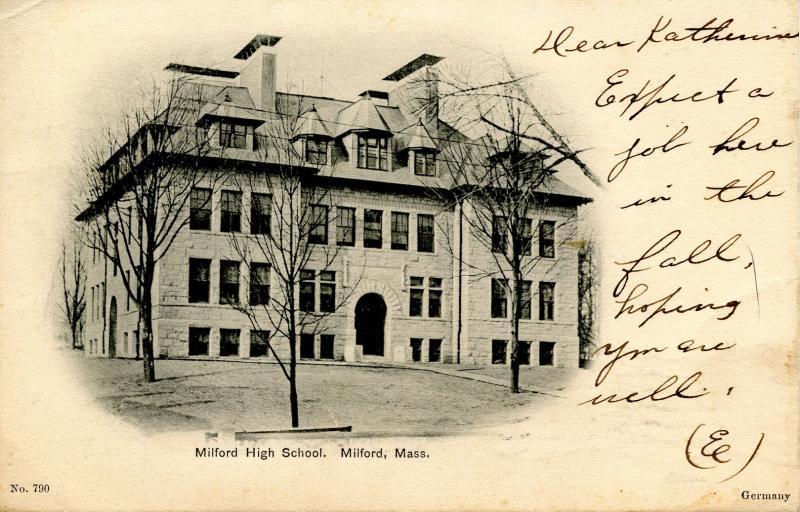 Dear Katherine
Expect a
job here
in the
fall,
hoping
you are
well.
(Ec)
Milford High School. Milford, Mass.
No. 790
Germany